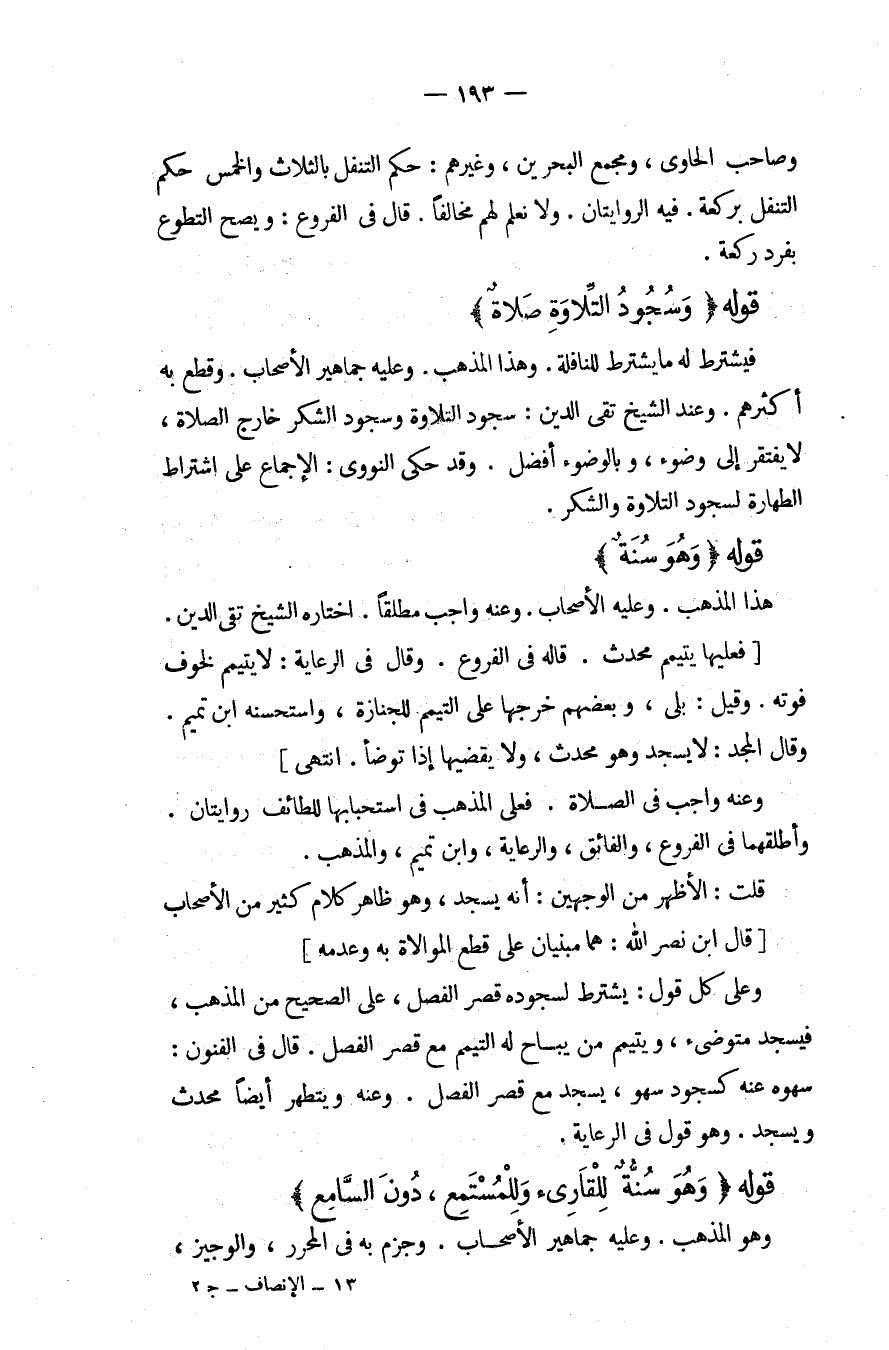 — ١٩٣ —
وصاحب الحاوى ، ومجمع البحرين ، وغيرهم : حكم التنفل بالثلاث والخمس حكم
التنفل بركعة . فيه الروايتان . ولا نعلم لهم مخالفاً . قال فى الفروع : ويصح التطوع
بفرد ركعة .
قوله ﴿ وَسُجُودُ التِّلَاوَةِ صَلَاةٌ ﴾
فيشترط له مايشترط للنافلة . وهذا المذهب . وعليه جماهير الأصحاب . وقطع به
أكثرهم . وعند الشيخ تقى الدين : سجود التلاوة وسجود الشكر خارج الصلاة ،
لايفتقر إلى وضوء ، وبالوضوء أفضل . وقد حكى النووى : الإجماع على اشتراط
الطهارة لسجود التلاوة والشكر .
قوله ﴿ وَهُوَ سُنَةٌ ﴾
هذا المذهب . وعليه الأصحاب . وعنه واجب مطلقاً . اختاره الشيخ تقى الدين .
[ فعليها يتيمم محدث . قاله فى الفروع . وقال فى الرعاية : لايتيمم لخوف
فوته . وقيل : بلى ، وبعضهم خرجها على التيمم للجنازة ، واستحسنه ابن تميم .
وقال المجد : لايسجد وهو محدث ، ولا يقضيها إذا توضأ . انتهى ]
وعنه واجب فى الصلاة . فعلى المذهب فى استحبابها للطائف روايتان .
وأطلقهما فى الفروع ، والفائق ، والرعاية ، وابن تميم ، والمذهب .
قلت : الأظهر من الوجهين : أنه يسجد ، وهو ظاهر كلام كثير من الأصحاب
[ قال ابن نصر الله : هما مبنيان على قطع الموالاة به وعدمه ]
وعلى كل قول : يشترط لسجوده قصر الفصل ، على الصحيح من المذهب ،
فيسجد متوضىء ، ويتيمم من يباح له التيمم مع قصر الفصل . قال فى الفنون :
سهوه عنه كسجود سهو ، يسجد مع قصر الفصل . وعنه ويتطهر أيضاً محدث
ويسجد . وهو قول فى الرعاية .
قوله ﴿ وَهُوَ سُنَّةٌ لِلْقَارِىء وَلِلْمُسْتَمِعِ ، دُونَ السَّامِعِ ﴾
وهو المذهب . وعليه جماهير الأصحاب . وجزم به فى المحرر ، والوجيز ،
١٣ – الإنصاف – ج ٢